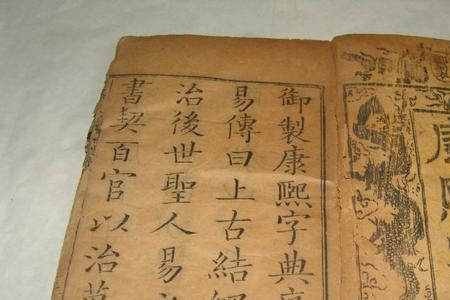 康熙
御製康熙字典序
易傳曰上古結繩
治後世聖人易
書契百官以治萬